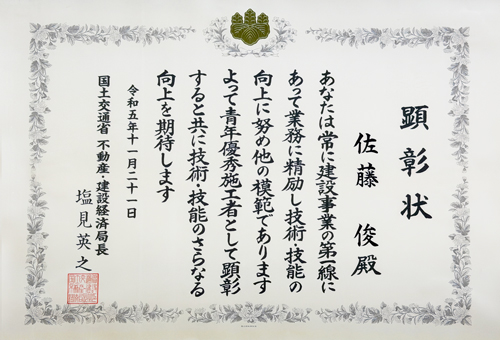 顕彰状
佐藤 俊殿
あなたは常に建設事業の第一線に
あって業務に精励し技術・技能の
向上に努め他の模範であります
よって青年優秀施工者として顕彰
すると共に技術・技能のさらなる
向上を期待します
令和五年十一月二十一日
国土交通省 不動産・建設経済局長
塩見英之